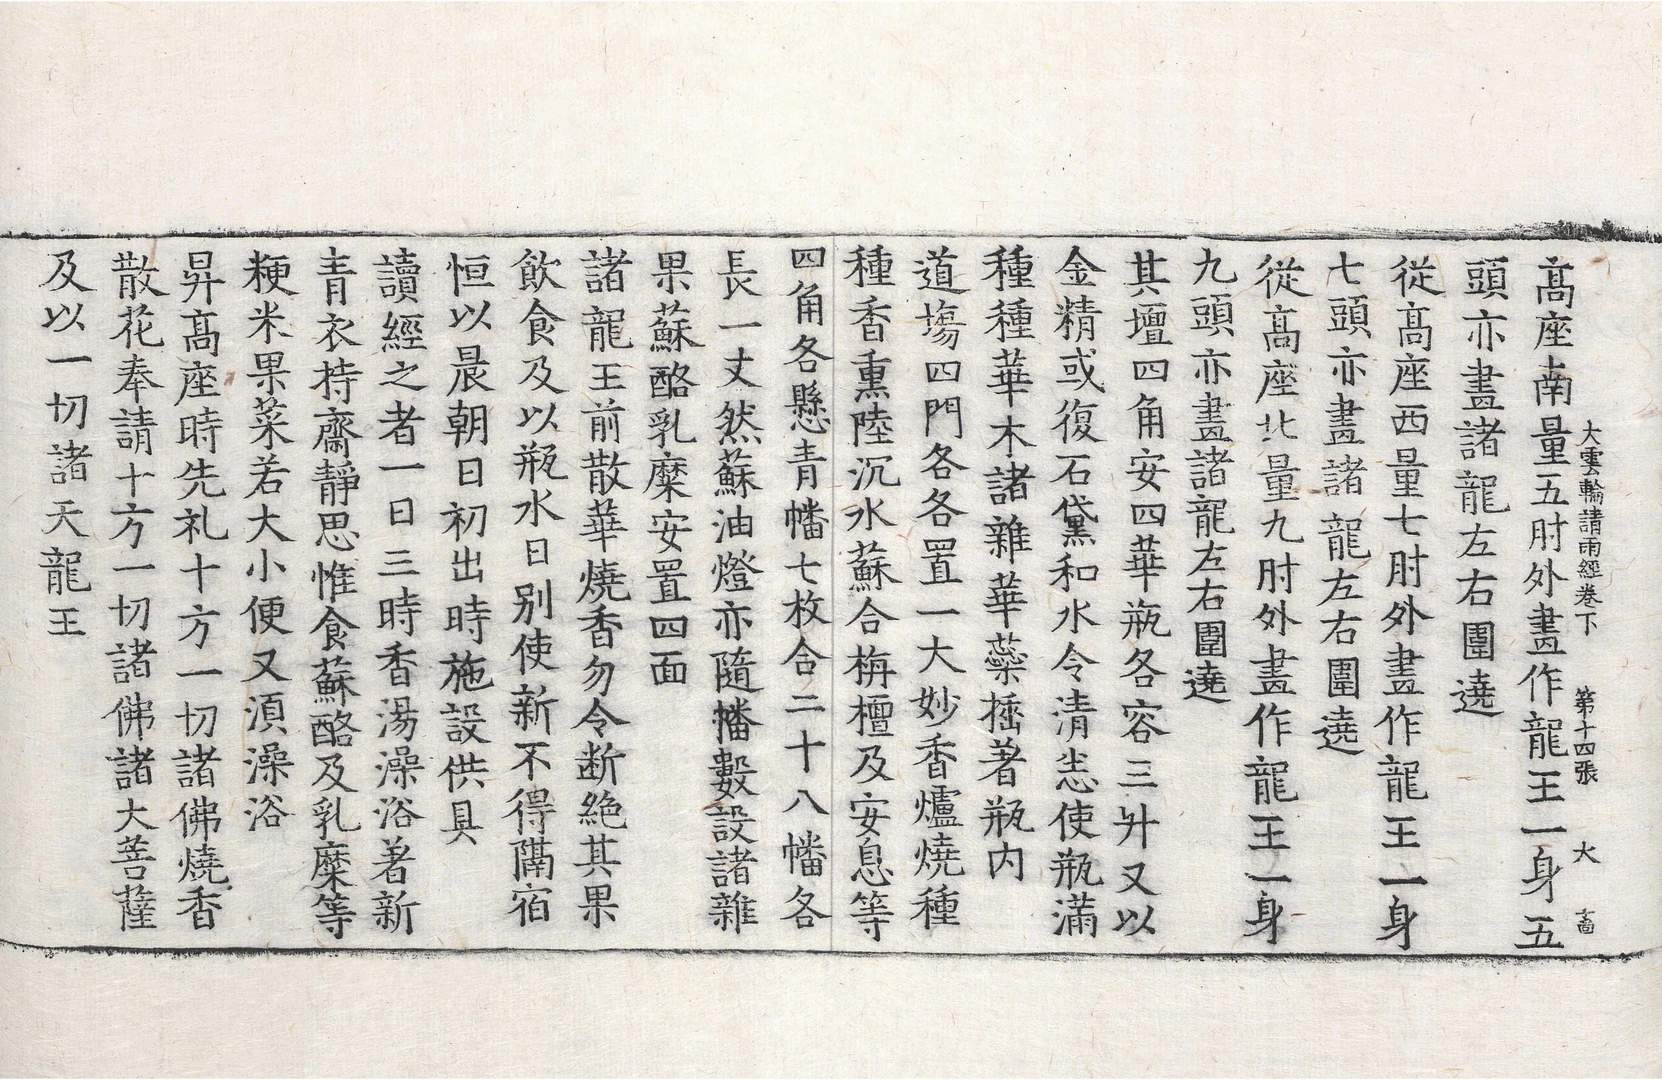 大雲輪請雨經卷下 第十四張 大
高座南量五肘外畫作龍王一身五
頭亦畫諸龍左右圍遶
從高座西量七肘外畫作龍王一身
七頭亦畫諸龍左右圍遶
從高座北量九肘外畫作龍王一身
九頭亦畫諸龍左右圍遶
其壇四角安四華瓶各容三升又以
金精或復石黛和水令清恙使瓶滿
種種華木諸雜華蘂揷著瓶内
道塲四門各各置一大妙香爐燒種
種香熏陸沉水蘇合栴檀及安息等
四角各懸青幡七枚合二十八幡各
長一丈然蘇油燈亦隨幡數設諸雜
果蘇酪乳糜安置四面
諸龍王前散華燒香勿令断絶其果
飲食及以瓶水日別使新不得隔宿
恒以晨朝日初出時施設供具
讀經之者一日三時香湯澡浴著新
青衣持齋靜思惟食蘇酪及乳糜等
粳米果菜若大小便又湏澡浴
昇高座時先礼十方一切諸佛燒香
散花奉請十方一切諸佛諸大菩薩
及以一切諸天龍王